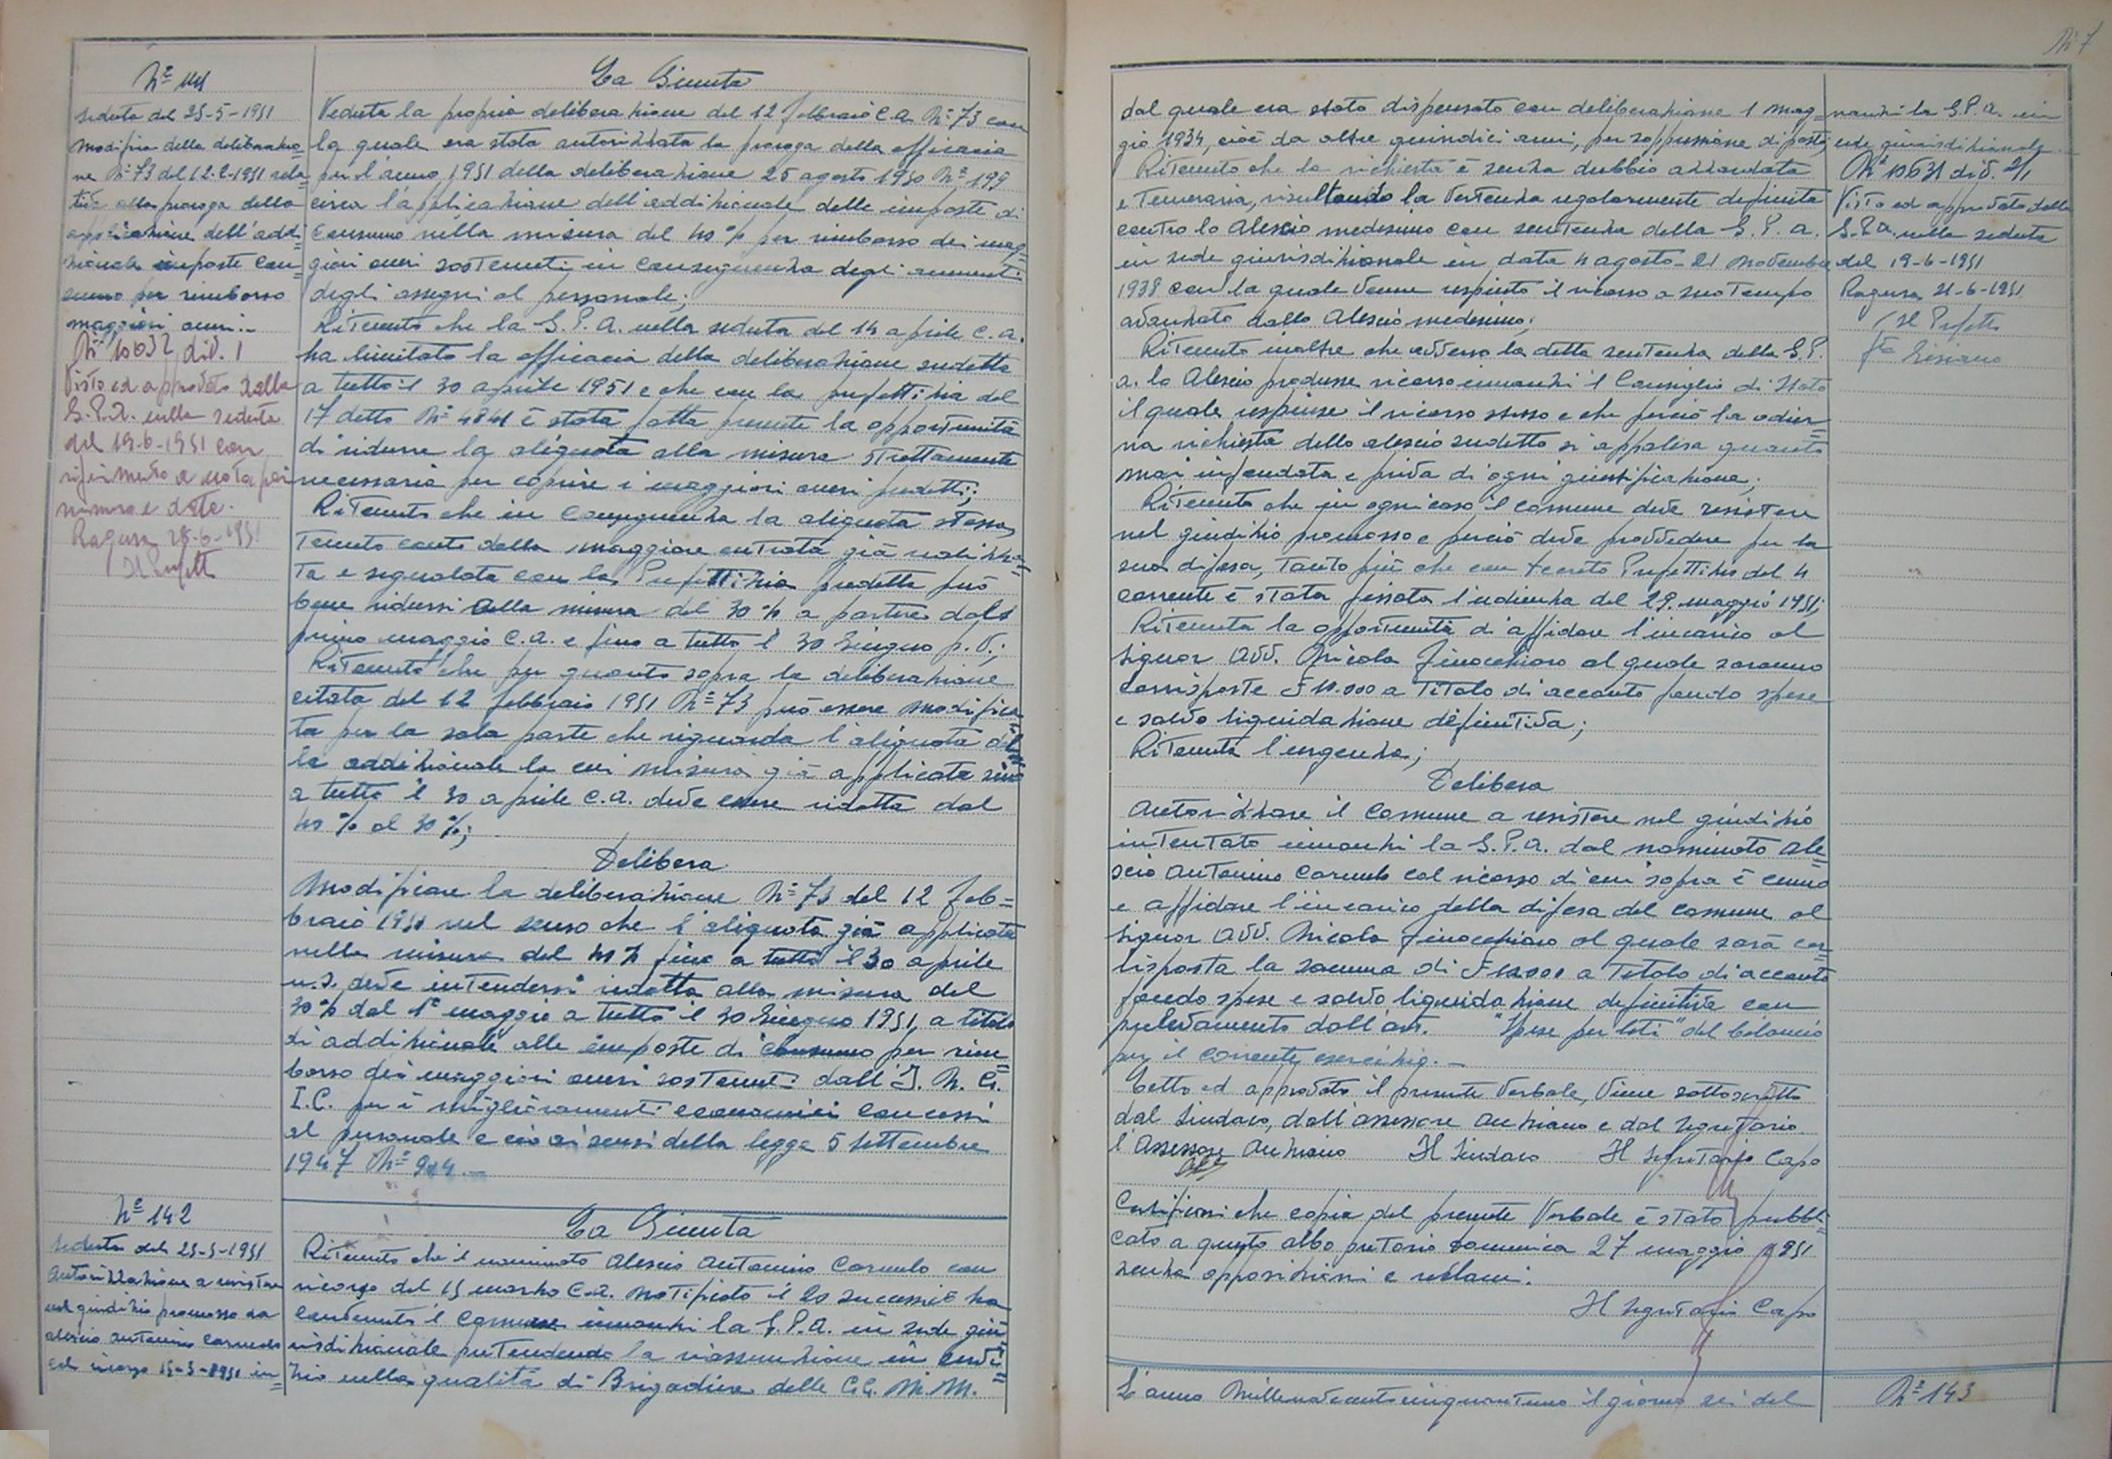 Nº 141
seduta del 25-5-1951
modifica della deliberazio=
ne Nº 73 del 12-2-1951 rela=
tiva alla proroga della
applicazione dell'addi
zionale imposte con=
sumo per rimborso
maggiori oneri.-
Nº 10632 div. 1
Visto ed approvato dalla
G.P.A. nella seduta
del 19-6-1951 con
riferimento a nota pari
numero e data.
Ragusa 28-6-1951
Il Prefetto
La Giunta
Veduta la propria deliberazione del 12 febbraio c.a. Nº 73 con
la quale era stata autorizzata la proroga della efficacia
per l'anno 1951 della deliberazione 25 agosto 1950 Nº 199
circa l'applicazione dell'addizionale delle imposte di
consumo nella misura del 40% per rimborso dei mag
giori oneri sostenuti in conseguenza degli aumenti
degli assegni al personale;
Ritenuto che la G.P.A. nella seduta del 14 aprile c.a.
ha limitato la efficacia della deliberazione sudetta
a tutto il 30 aprile 1951 e che con la prefettizia del
17 detto Nº 4841 è stata fatta presente la opportunità
di ridurre la aliquota alla misura strettamente
necessaria per coprire i maggiori oneri predetti;
Ritenuto che in conseguenza la aliquota stessa,
tenuto conto della maggiore entrata già realizza=
ta e segnalata con la Prefettizia predetta può
bene ridursi alla misura del 30% a partire dal
primo maggio c.a. e fino a tutto il 30 Giugno p.v.;
Ritenuto che per quanto sopra la deliberazione
citata del 12 febbraio 1951 Nº 73 può essere modifica
ta per la sola parte che riguarda l'aliquota del
la addizionale la cui misura già applicata sino
a tutto il 30 aprile c.a. deve essere ridotta dal
40% al 30%;
Delibera
Modificare la deliberazione Nº 73 del 12 feb=
braio 1951 nel senso che l'aliquota già applicata
nella misura del 40% fino a tutto il 30 aprile
u.s. deve intendersi ridotta alla misura del
30% dal 1º maggio a tutto il 30 Giugno 1951, a titolo
di addizionale alle imposte di consumo per rim=
borso dei maggiori oneri sostenuti dall'I.N.G.
I.C. per i miglioramenti economici concessi
al personale e ciò ai sensi della legge 5 settembre
1947 Nº 944.—
Nº 142
seduta del 25-5-1951
Autorizzazione a resistere
nel giudizio promosso da
Alescio Antonino Carmelo
col ricorso 15-3-1951 in=
La Giunta
Ritenuto che il nominato Alescio Antonino Carmelo con
ricorso del 15 marzo c.a. notificato il 20 successivo ha
convenuto il Comune innanzi la G.P.A. in sede giu
risdizionale pretendendo la riassunzione in servi=
zio nella qualità di Brigadiere delle GG. M.M.
Nº 7
dal quale era stato dispensato con deliberazione 1 mag=
gio 1934, cioè da oltre quindici anni, per soppressione di posto;
Ritenuto che la richiesta è senza dubbio azzardata
e temeraria, risultando la vertenza regolarmente definita
contro lo Alescio medesimo con sentenza della G.P.A.
in sede giurisdizionale in data 4 agosto - 21 novembre
1938 con la quale venne respinto il ricorso a suo tempo
avanzato dallo Alescio medesimo;
Ritenuto inoltre che avverso la detta sentenza della G.P.
A. lo Alescio produsse ricorso innanzi il Consiglio di Stato
il quale respinse il ricorso stesso e che perciò la odier
na richiesta dello Alescio sudetto si appalesa quanto
mai infondata e priva di ogni giustificazione;
Ritenuto che in ogni caso il comune deve resistere
nel giudizio promosso e perciò deve provvedere per la
sua difesa, tanto più che con decreto Prefettizio del 4
corrente è stata fissata l'udienza del 29 maggio 1951;
Ritenuta la opportunità di affidare l'incarico al
signor avv. Nicola Finocchiaro al quale saranno
corrisposte £ 10.000 a titolo di acconto fondo spese
e salvo liquidazione definitiva;
Ritenuta l'urgenza;
Delibera
Autorizzare il Comune a resistere nel giudizio
intentato innanzi la G.P.A. dal nominato Ale=
scio Antonino Carmelo col ricorso di cui sopra è cenno
e affidare l'incarico della difesa del Comune al
signor avv. Nicola Finocchiaro al quale sarà cor=
risposta la somma di £ 10.000 a titolo di acconto
fondo spese e salvo liquidazione definitiva con
prelevamento dall'art. "Spese per liti" del bilancio
per il corrente esercizio.—
Letto ed approvato il presente verbale, viene sottoscritto
dal Sindaco, dall'assessore anziano e dal segretario.
L'Assessore Anziano Il Sindaco Il Segretario Capo
Certificasi che copia del presente verbale è stata pubbli=
cato a questo albo pretorio domenica 27 maggio 1951
senza opposizioni e reclami.
Il Segretario Capo
L'anno millenovecentocinquantuno il giorno sei del
nanzi la G.P.A. in
sede giurisdizionale
Nº 10631 div. 2/1
Visto ed approvato dalla
G.P.A. nella seduta
del 19-6-1951
Ragusa 21-6-1951
Il Prefetto
Nº 143